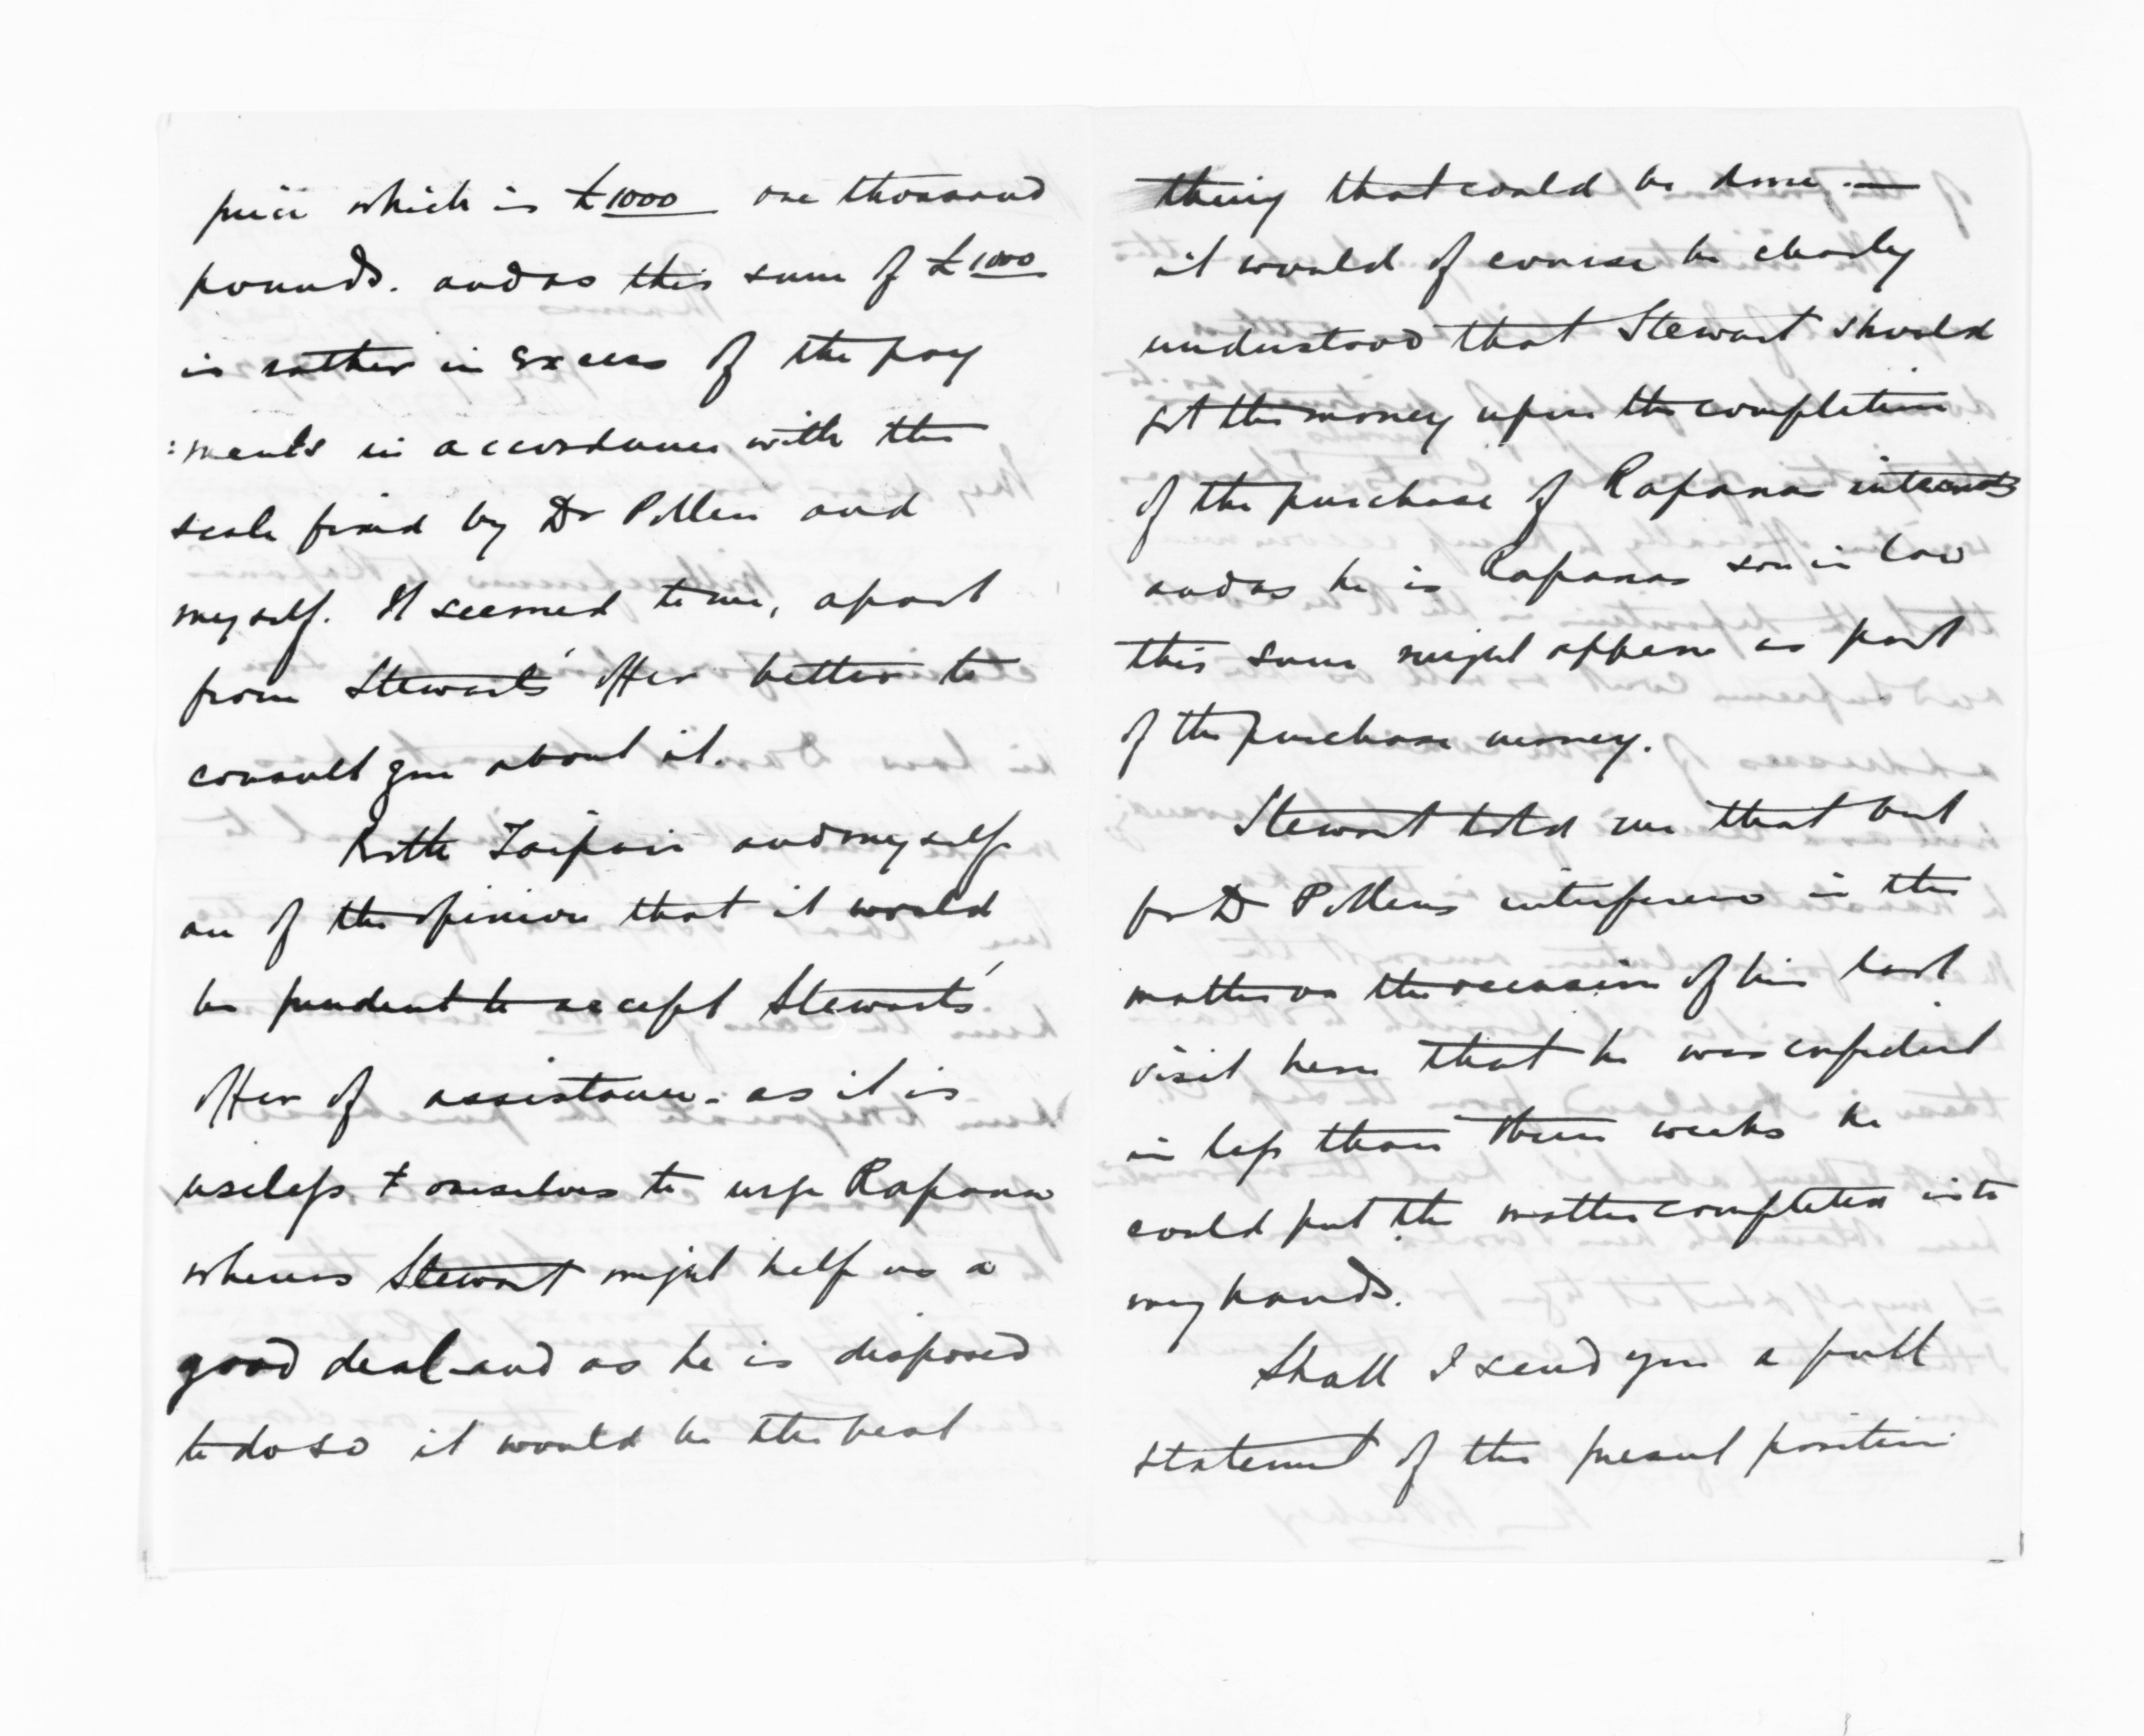 price which is £1000 one thousand
pounds. and as this sum of £1000
is rather in excess of the pay
:ments in accordance with the
scale fixed by Dr Pollen and
myself. It seemed to me, apart
from Stewart's offer better to
consult you about it.
Both Taipari and myself
are of the opinion that it would
be prudent to accept Stewart's
offer of assistance. as it is
useless & ourselves to urge Rapana
whereas Stewart might help us a
good deal and as he is disposed
to do so it would be the best
thing that could be done. —
it would of course be clearly
understood that Stewart should
get the money upon the completion
of the purchase of Rapanas interests
and as he is Rapanas son in law
this sum might appear as part
of the purchase money.
Stewart told me that but
for Dr Pollens interference in the
matter on the occasion of his last
visit here that he was confident
in less than three weeks he
could put the matter completed into
my hands.
Shall I send you a full
statement of the present position